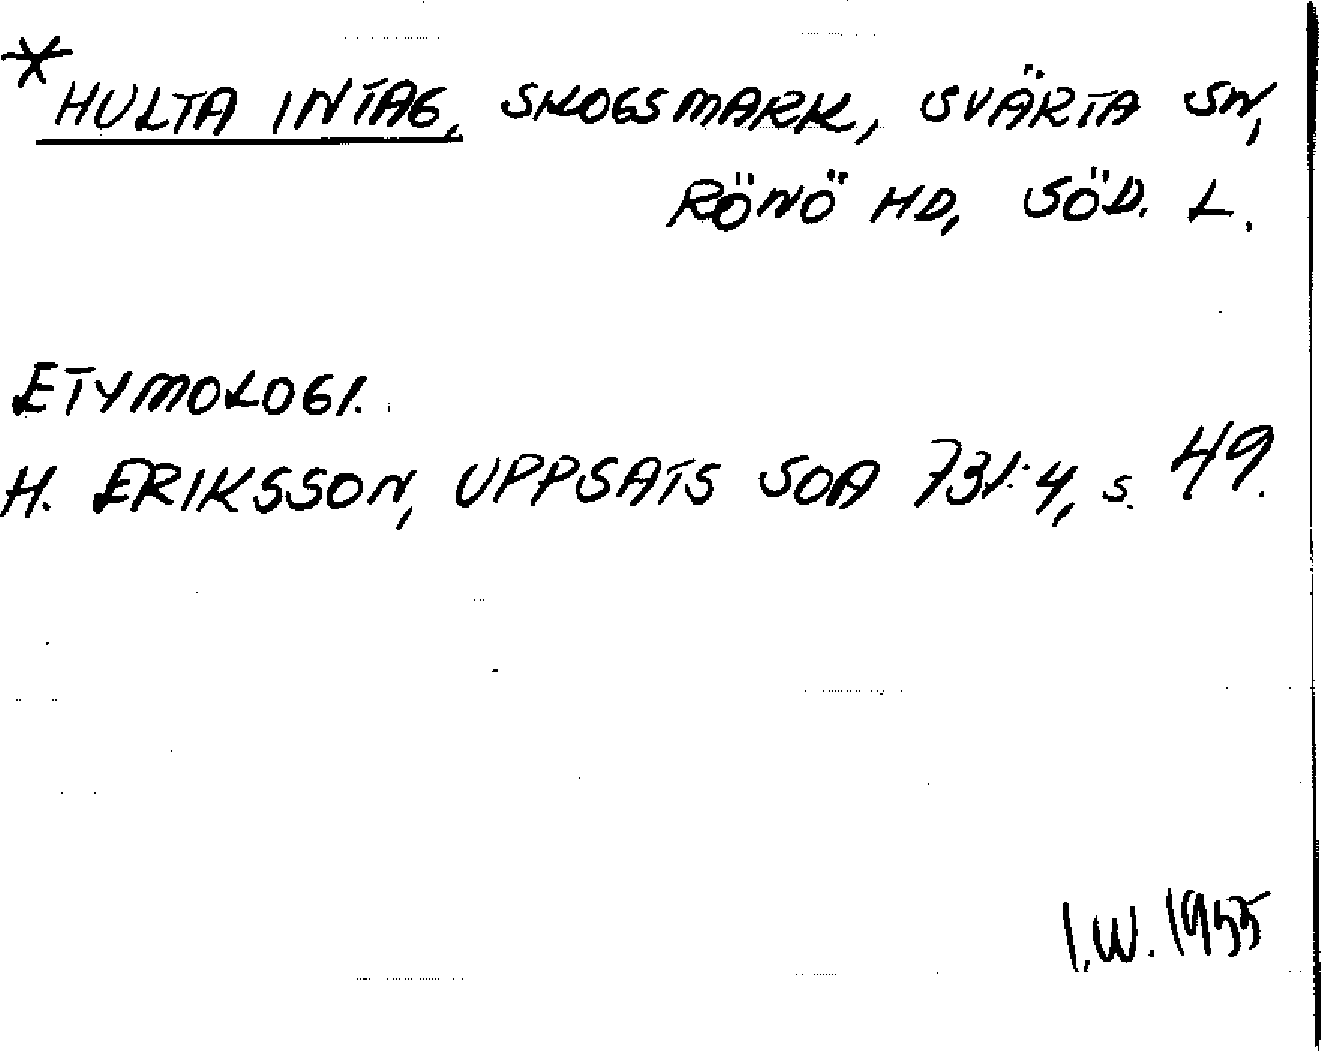 *HULTA INTAG, SKOGSMARK, SVÄRTA SN,
RÖNÖ HD, SÖD. L.
ETYMOLOGI.
H. ERIKSSON, UPPSATS SOA 731:4, s. 49.
I.W. 1955